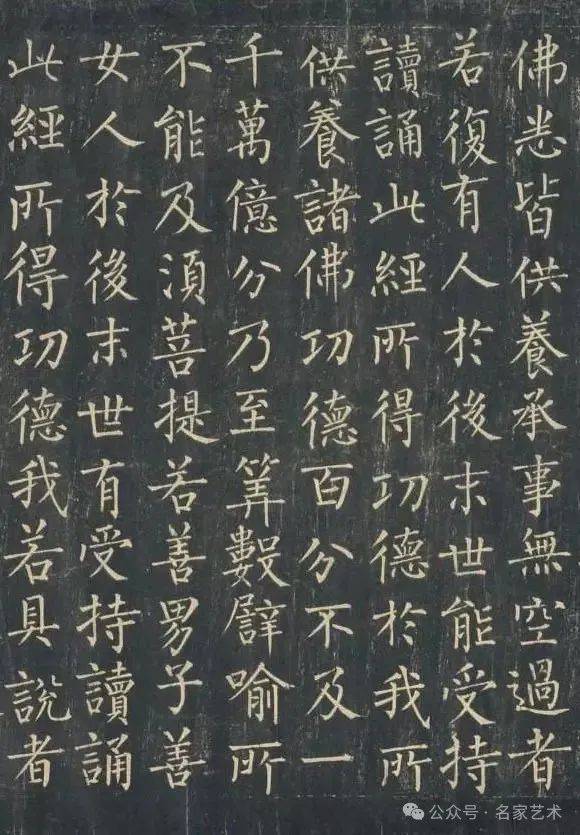 佛悉皆供養承事無空過者
若復有人於後末世能受持
讀誦此經所得功德於我所
供養諸佛功德百分不及一
千萬億分乃至筭數譬喻所
不能及須菩提若善男子善
女人於後末世有受持讀誦
此經所得功德我若具說者
公众号·名家艺术